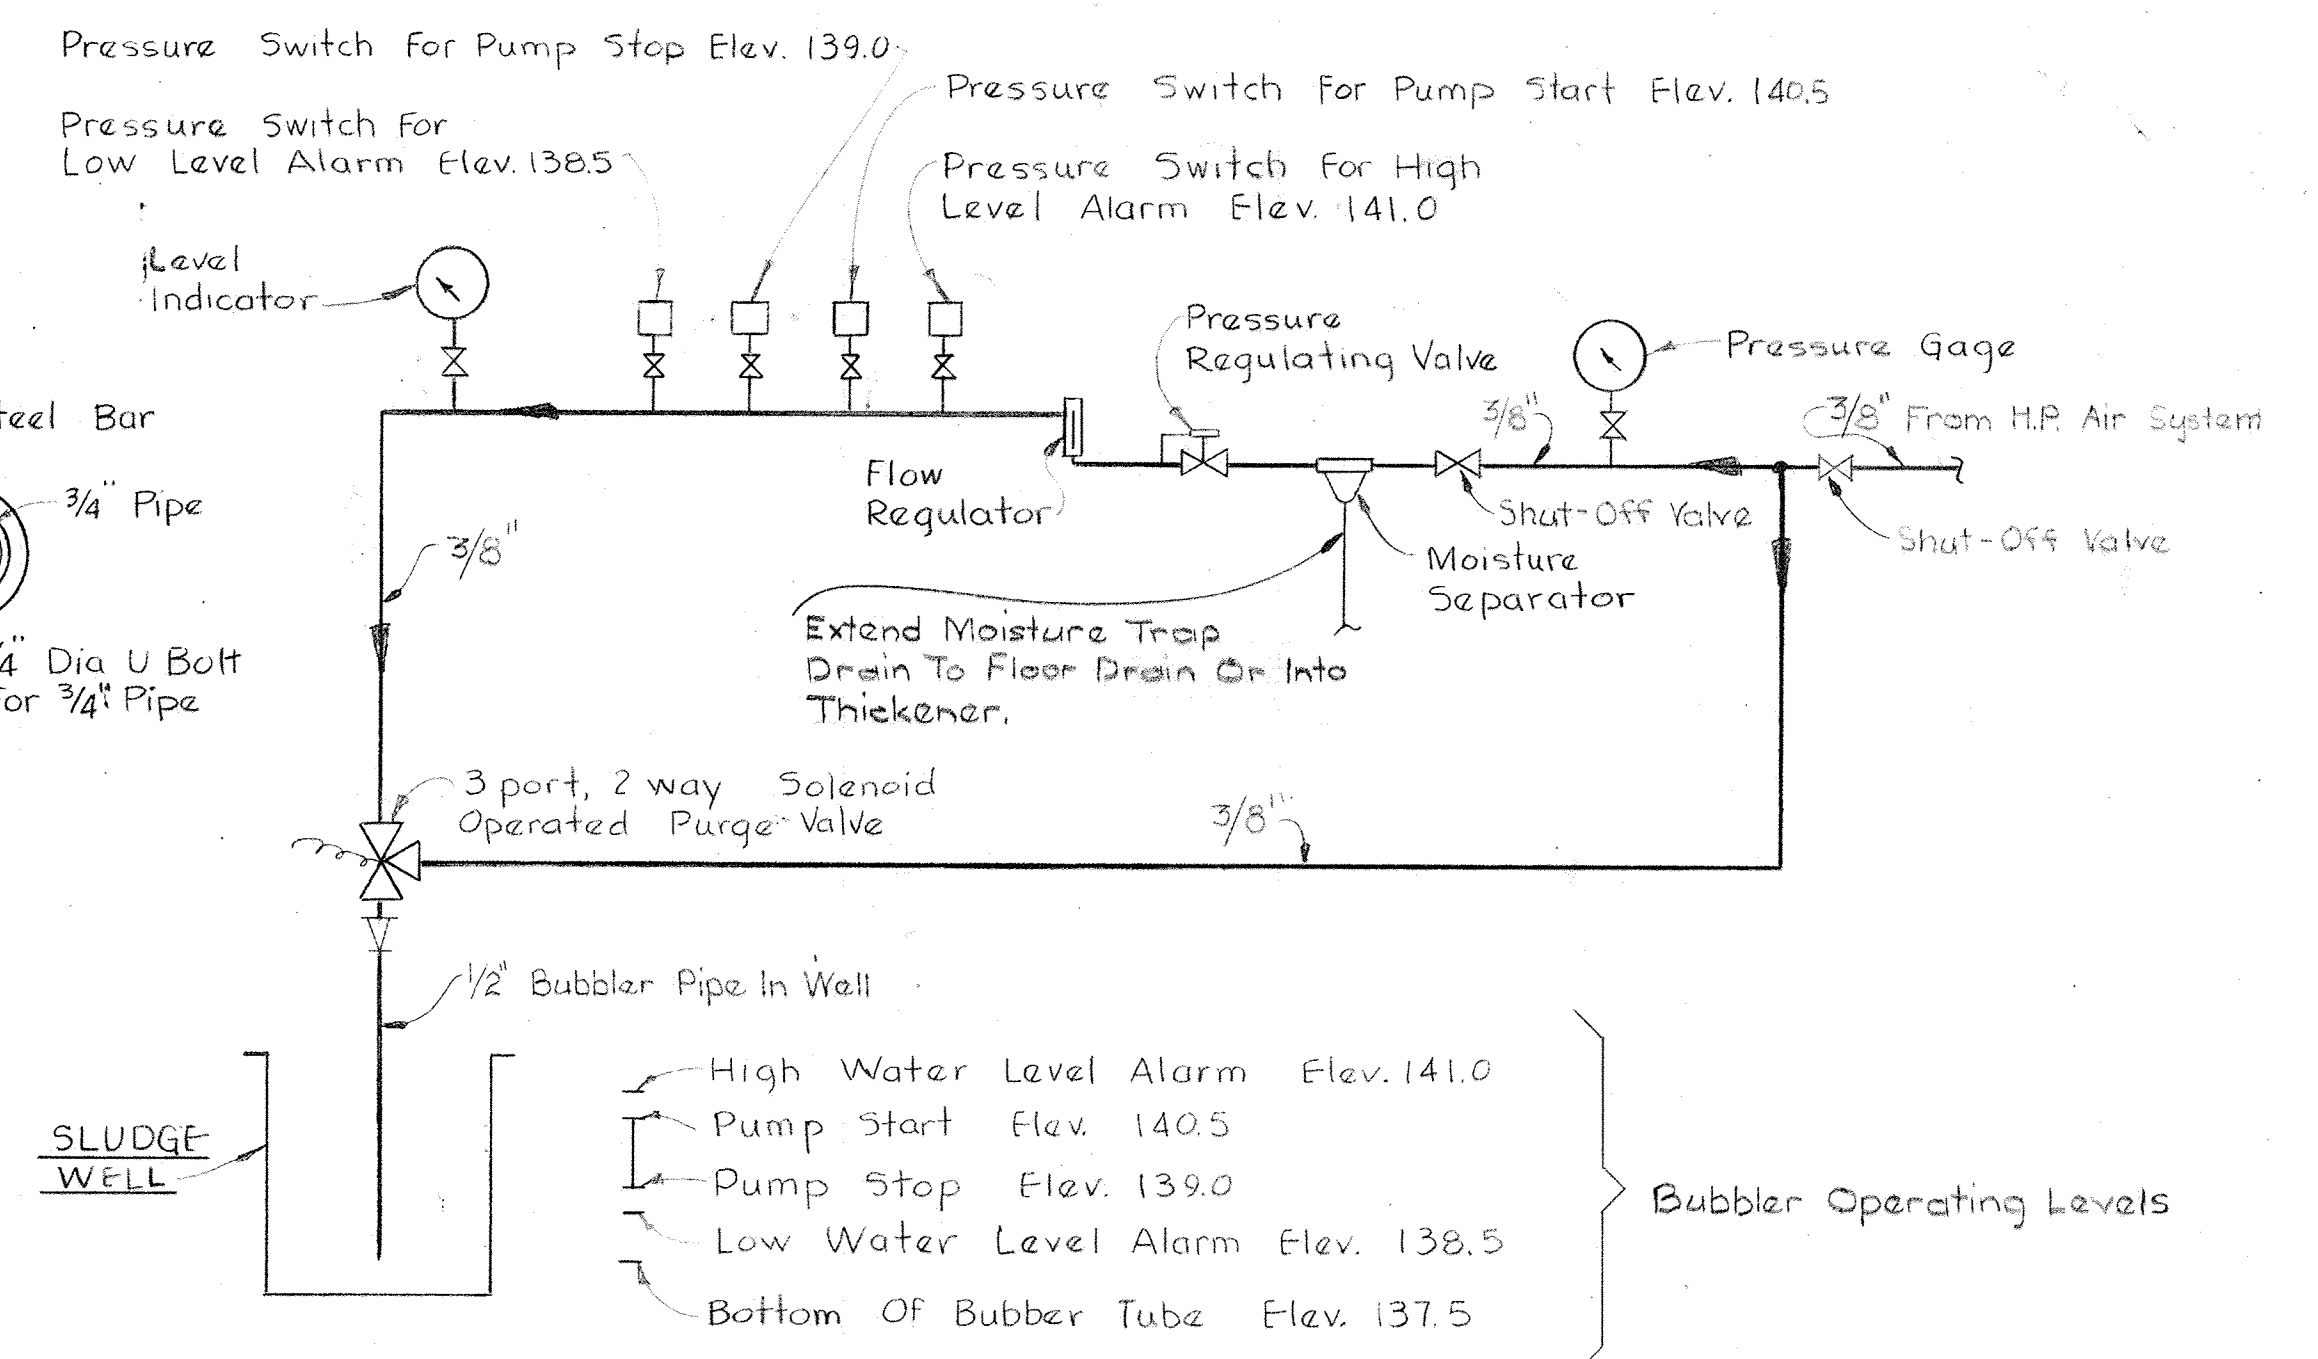 Pressure Switch For Pump Stop Elev. 139.0
Pressure Switch For Pump Start Elev. 140.5
Pressure Switch For
Low Level Alarm Elev. 138.5
Pressure Switch For High
Level Alarm Elev. 141.0
Level
Indicator
Pressure
Regulating Valve
Pressure Gage
3/8"
3/8" From H.P. Air System
teel Bar
Flow
Regulator
3/4" Pipe
Shut-Off Valve
Shut-Off Valve
3/8"
Moisture
Separator
Extend Moisture Trap
Drain To Floor Drain Or Into
Thickener.
4" Dia U Bolt
For 3/4" Pipe
3 port, 2 way Solenoid
Operated Purge Valve
3/8"
1/2" Bubbler Pipe In Well
High Water Level Alarm Elev. 141.0
Pump Start Elev. 140.5
SLUDGE
WELL
Pump Stop Elev. 139.0
Bubbler Operating Levels
Low Water Level Alarm Elev. 138.5
Bottom Of Bubber Tube Elev. 137.5